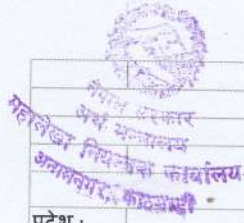 नेपाल सरकार
अर्थ मन्त्रालय
महालेखा नियन्त्रक कार्यालय
अनामनगर, काठमाडौं
प्रदेश :